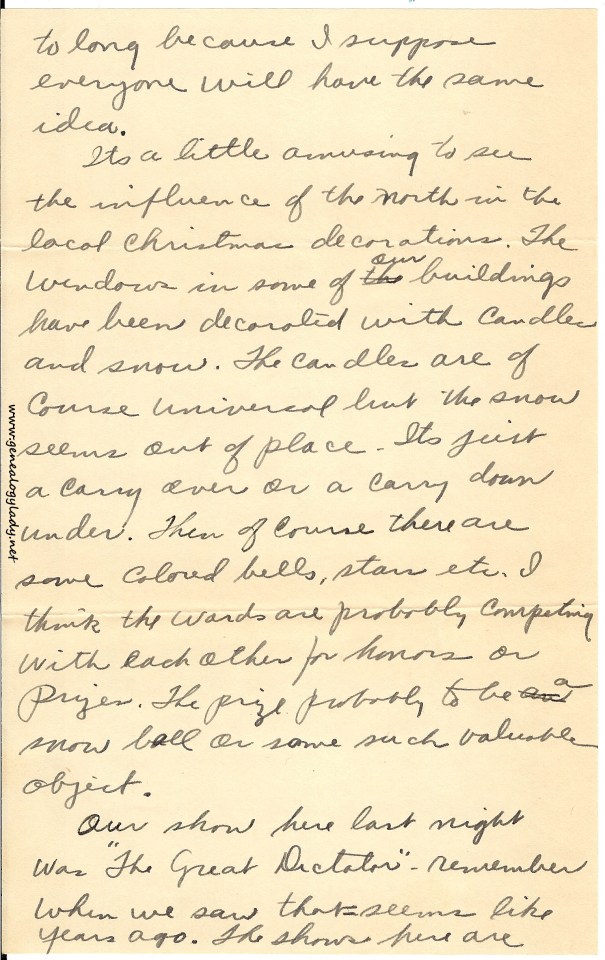 to long because I suppose
everyone will have the same
idea.
Its a little amusing to see
the influence of the north in the
local Christmas decorations. The
windows in some of the our buildings
have been decorated with candles
and snow. The candles are of
course universal but the snow
seems out of place - Its just
a carry over or a carry down
under. Then of course there are
some colored bells, stars etc. I
think the wards are probably competing
with each other for honors or
prizes. The prize probably to be an a
snow ball or some such valuable
object.
Our show here last night
was "The Great Dictator" - remember
when we saw that - seems like
years ago. The shows here are
www.genealogylady.net